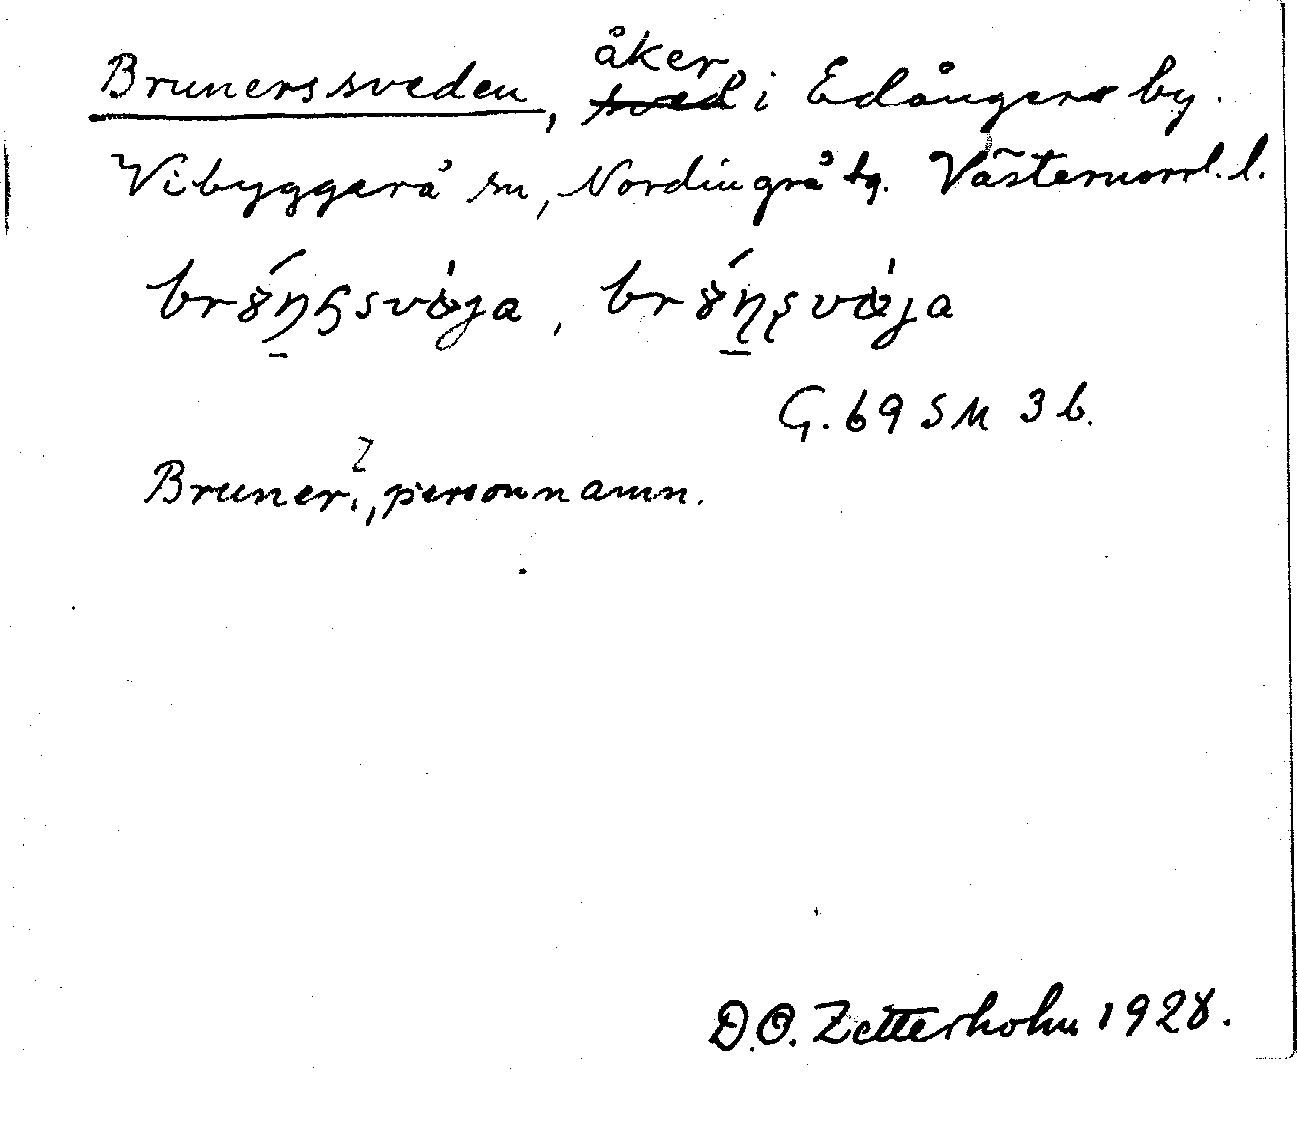 Brunerssveden, åker i Edånger by.
Vibyggerå sn, Nordingrå tg. Västernorrl. l.
G. 69 SM 3 b.
Bruner?, personnamn.
D.O. Zetterholm 1928.